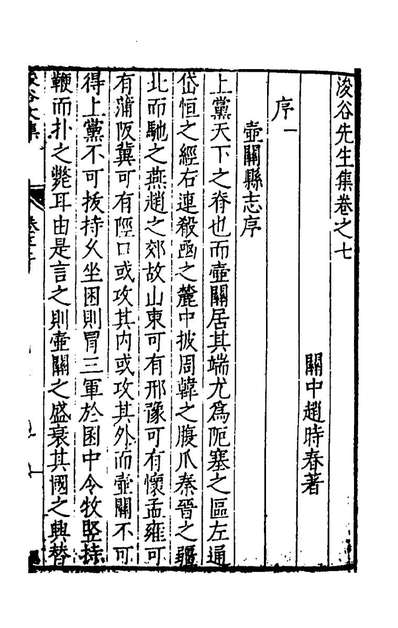 浚谷先生集卷之七
關中趙時春著
序一
壺關縣志序
上黨天下之脊也而壺關居其端尤爲阨塞之區左通
岱恒之經右連殽函之麓中披周韓之腹爪秦晉之疆
北而馳之燕趙之郊故山東可有邢豫可有懷孟雍可
有蒲阪冀可有陘口或攻其内或攻其外而壺關不可
得上黨不可拔持久坐困則胃三軍於圂中令牧竪持
鞭而扑之斃耳由是言之則壺關之盛衰其國之興替
浚谷文集